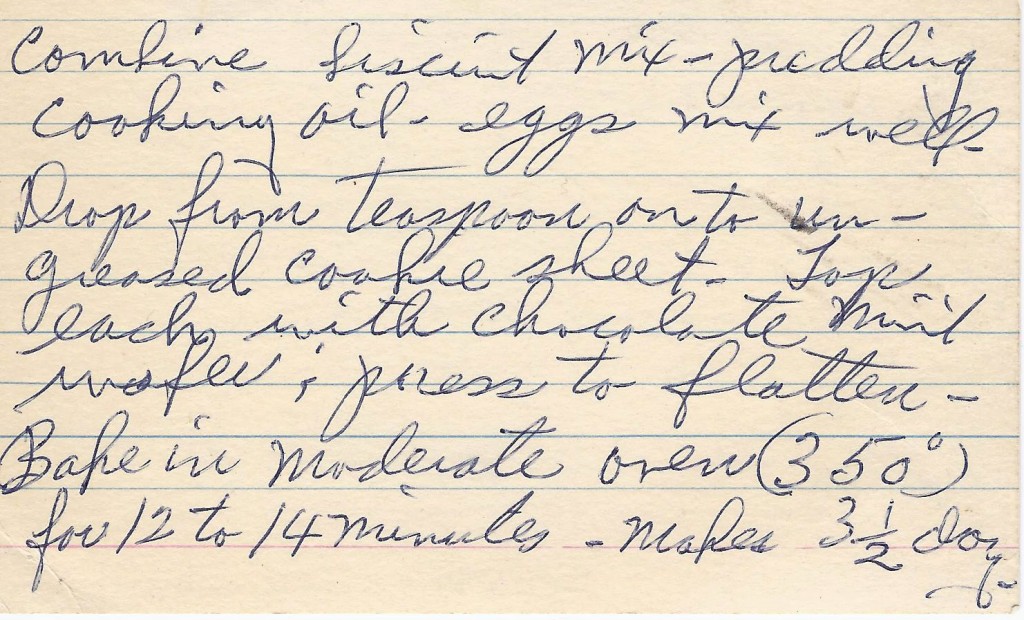 Combine biscuit mix - pudding
cooking oil - eggs mix well -
Drop from teaspoon on to un -
greased cookie sheet - Top
each with chocolate mint
wafer ; press to flatten -
Bake in moderate oven (350°)
for 12 to 14 minutes - Makes 3 1/2 doz -